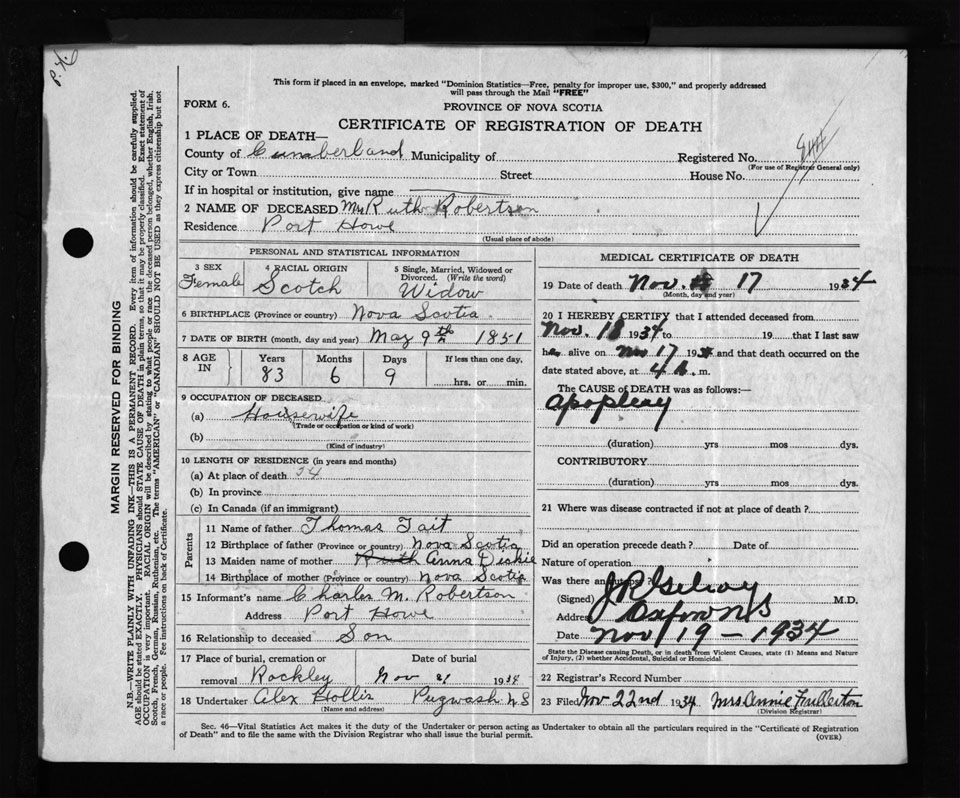 P. H. 6
This form if placed in an envelope, marked "Dominion Statistics—Free, penalty for improper use, $300," and properly addressed
will pass through the Mail "FREE"
FORM 6.
PROVINCE OF NOVA SCOTIA
CERTIFICATE OF REGISTRATION OF DEATH
1 PLACE OF DEATH—
County of Cumberland Municipality of Registered No.
(For use of Registrar General only)
City or Town Street House No.
If in hospital or institution, give name
2 NAME OF DECEASED Mrs Ruth Robertson
Residence Port Howe
(Usual place of abode)
PERSONAL AND STATISTICAL INFORMATION
3 SEX Female
4 RACIAL ORIGIN Scotch
5 Single, Married, Widowed or Divorced. (Write the word) Widow
6 BIRTHPLACE (Province or country) Nova Scotia
7 DATE OF BIRTH (month, day and year) May 9th 1851
8 AGE IN Years Months Days If less than one day,
83 6 9 hrs. or min.
9 OCCUPATION OF DECEASED
(a) Housewife
(Trade or occupation or kind of work)
(b)
(Kind of industry)
10 LENGTH OF RESIDENCE (in years and months)
(a) At place of death 34
(b) In province
(c) In Canada (if an immigrant)
Parents
11 Name of father Thomas Tait
12 Birthplace of father (Province or country) Nova Scotia
13 Maiden name of mother Ruth Anna
14 Birthplace of mother (Province or country) Nova Scotia
15 Informant's name Charles M. Robertson
Address Port Howe
16 Relationship to deceased Son
17 Place of burial, cremation or Date of burial
removal Rockley Nov 21 1934
18 Undertaker Alex Hollis Pugwash N S
(Name and address)
MEDICAL CERTIFICATE OF DEATH
19 Date of death Nov. 17 1934
(Month, day and year)
20 I HEREBY CERTIFY that I attended deceased from
Nov. 18 1934 to 19 that I last saw
her alive on Nov 17 1934 and that death occurred on
date stated above, at 4 m.
The CAUSE OF DEATH was as follows:—
apoplexy
(duration) yrs mos dys.
CONTRIBUTORY
(duration) yrs mos dys.
21 Where was disease contracted if not at place of death?
Did an operation precede death? Date of
Nature of operation
Was there an autopsy?
(Signed) M.D.
Address
Date Nov 19 - 1934
State the Disease causing Death, or in death from Violent Causes, state (1) Means and Nature
of Injury, (2) whether Accidental, Suicidal or Homicidal.
22 Registrar's Record Number
23 Filed Nov 22nd 1934 Mrs Annie Fullerton
(Division Registrar)
Sec. 46—Vital Statistics Act makes it the duty of the Undertaker or person acting as Undertaker to obtain all the particulars required in the "Certificate of Registration
of Death" and to file the same with the Division Registrar who shall issue the burial permit.
(OVER)
MARGIN RESERVED FOR BINDING
N.B.—WRITE PLAINLY WITH UNFADING INK—THIS IS A PERMANENT RECORD. Every item of information should be carefully supplied.
AGE should be stated EXACTLY. PHYSICIANS should STATE CAUSE OF DEATH in plain terms, so that it may be properly classified. Exact statement of
OCCUPATION is very important. RACIAL ORIGIN will be described by stating to what people or race the deceased person belonged, whether English, Irish,
Scotch, French, German, Russian, Ruthenian, etc. The terms "AMERICAN" or "CANADIAN" SHOULD NOT BE USED as they express citizenship but not
a race or people. See instructions on back of Certificate.